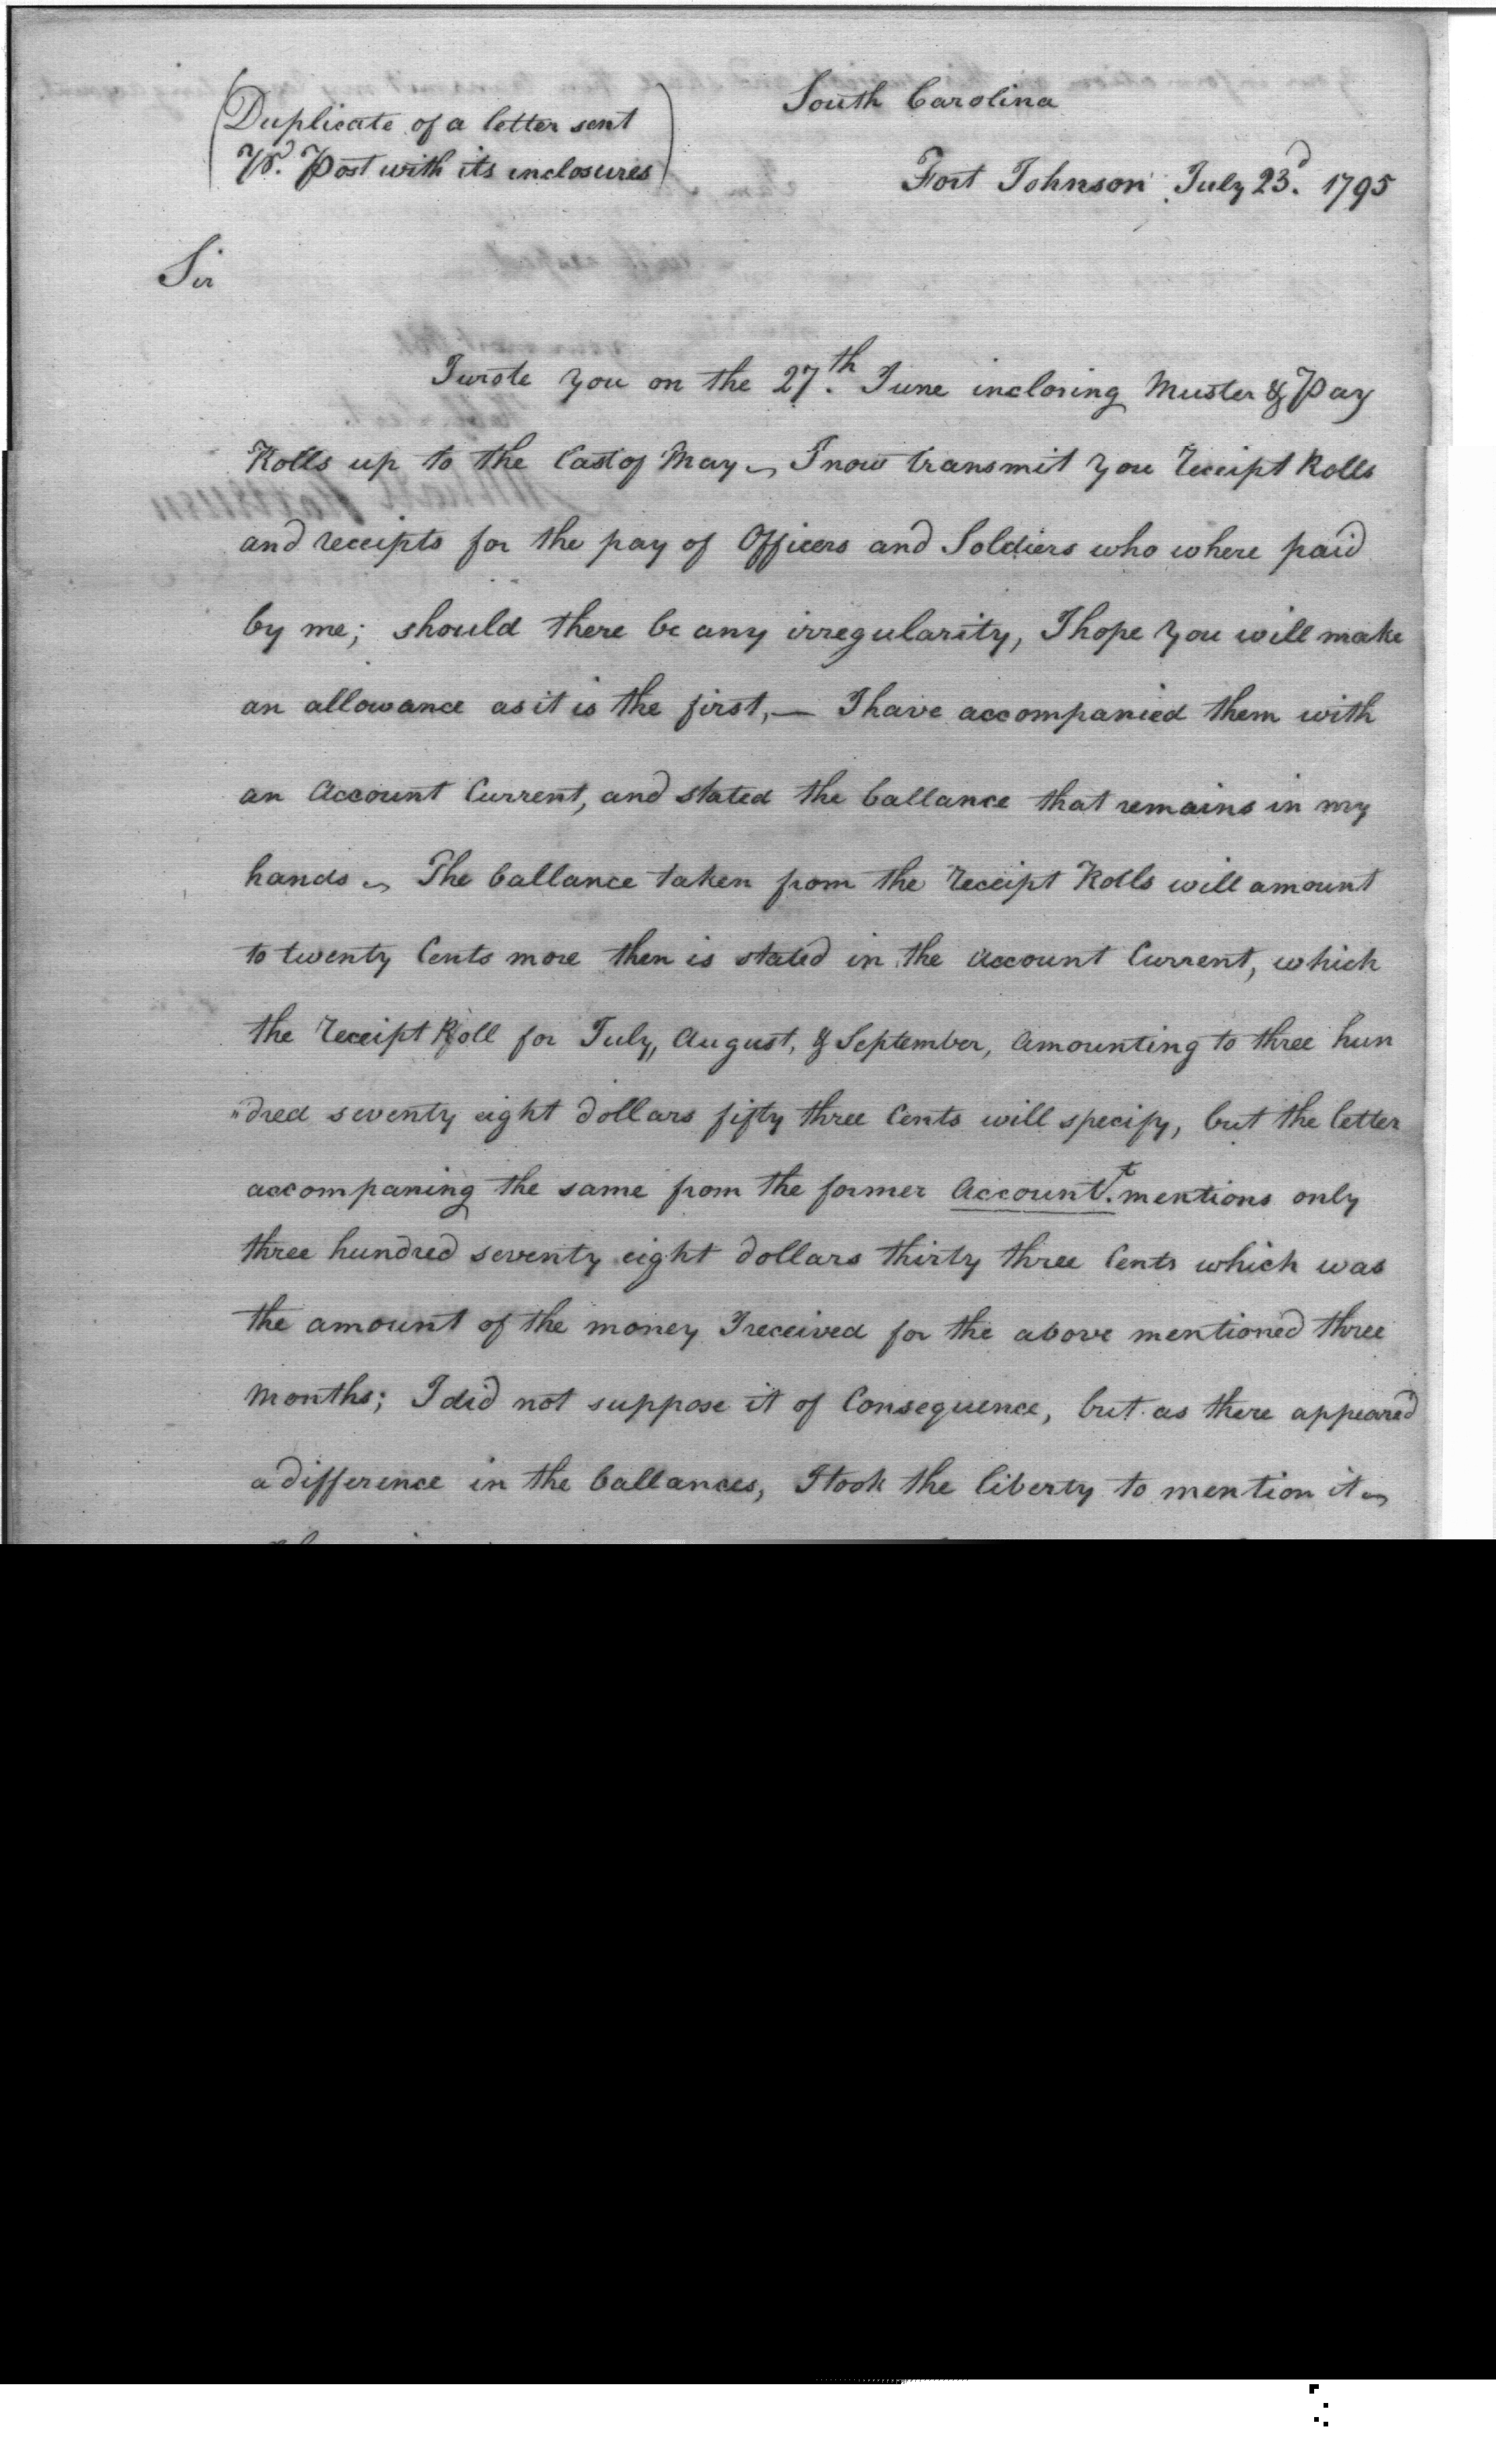 South Carolina
(Duplicate of a letter sent
Pr. Post with its inclosures)
Fort Johnson July 23d. 1795
Sir
I wrote you on the 27th. June inclosing Muster & Pay
Rolls up to the last of May ~ I now transmit you Receipt Rolls
and receipts for the pay of Officers and Soldiers who where paid
by me; should there be any irregularity, I hope you will make
an allowance as it is the first, — I have accompanied them with
an Account Current, and stated the ballance that remains in my
hands ~ The ballance taken from the Receipt Rolls will amount
to twenty Cents more then is stated in the Account Current, which
the Receipt Roll for July, August, & September, Amounting to three hun
"dred seventy eight dollars fifty three Cents will specify, but the letter
accompaning the same from the former Accountt. mentions only
three hundred seventy eight dollars thirty three Cents which was
the amount of the money I received for the above mentioned three
Months; I did not suppose it of Consequence, but as there appeared
a difference in the ballances, I took the liberty to mention it ~